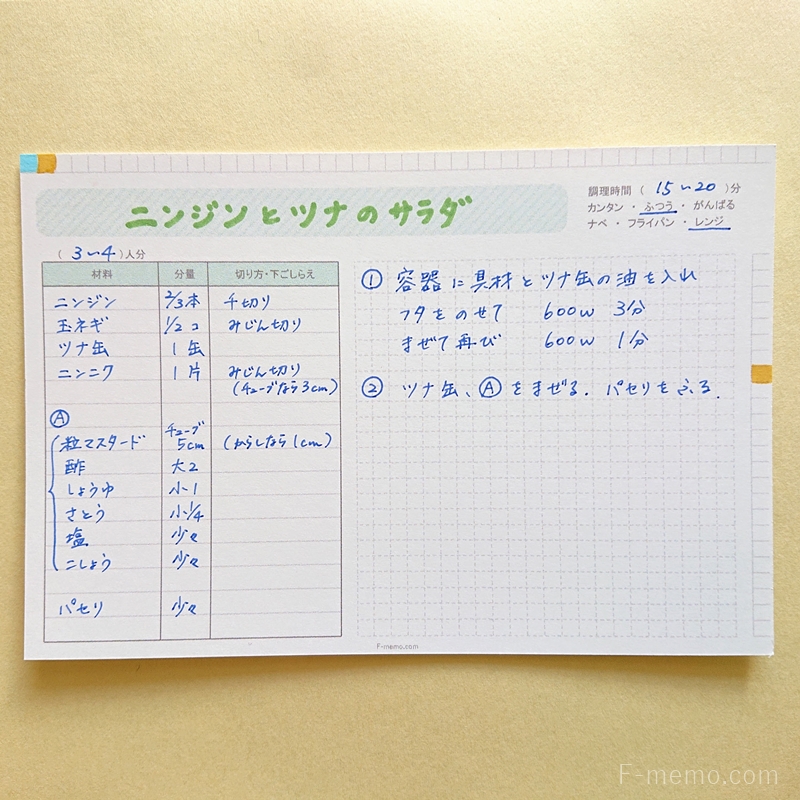 ニンジンとツナのサラダ
調理時間 ( 15〜20 )分
カンタン ・ ふつう ・ がんばる
ナベ ・ フライパン ・ レンジ
( 3〜4 )人分
材料 分量 切り方・下ごしらえ
ニンジン 2/3本 千切り
玉ネギ 1/2コ みじん切り
ツナ缶 1缶
ニンニク 1片 みじん切り
(チューブなら3cm)
Ⓐ
粒マスタード チューブ 5cm (からしなら1cm)
酢 大2
しょうゆ 小1
さとう 小1/4
塩 少々
こしょう 少々
パセリ 少々
① 容器に具材とツナ缶の油を入れ
フタをのせて 600w 3分
まぜて再び 600w 1分
② ツナ缶、Ⓐをまぜる. パセリをふる.
F-memo.com
F-memo.com